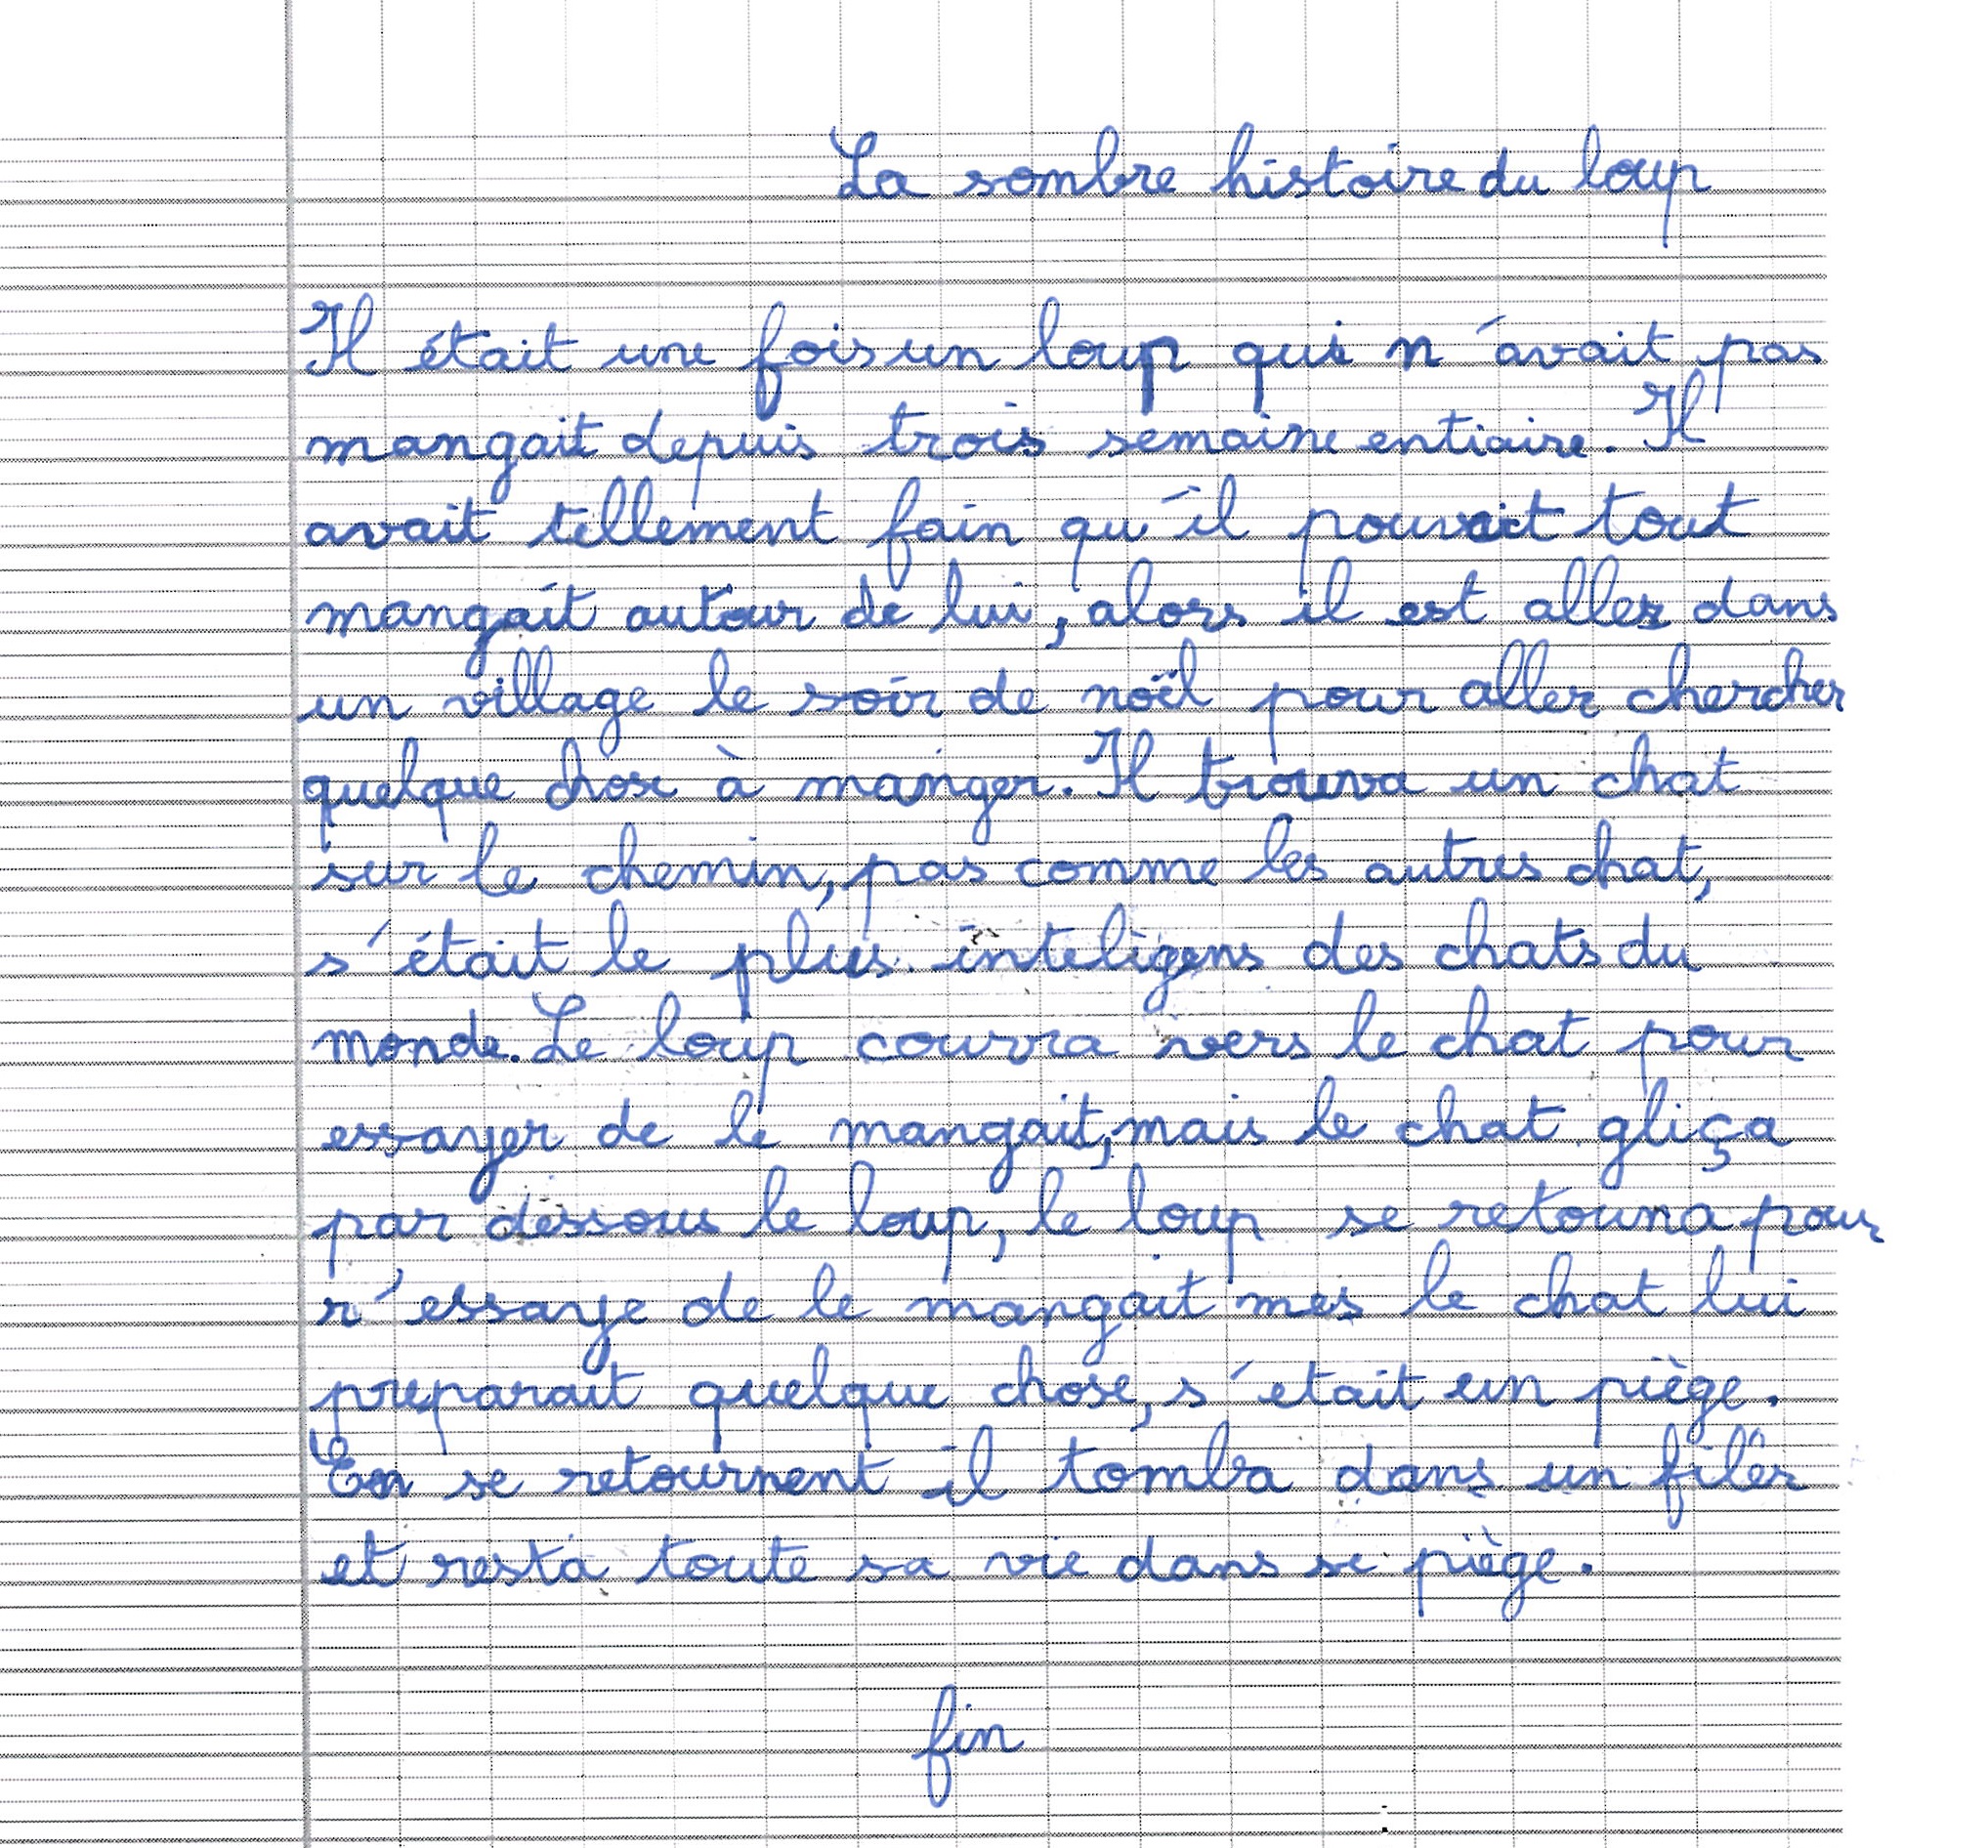 La sombre histoire du loup
Il était une fois un loup qui n'avait pas
mangait depuis trois semaine entiaire. Il
avait tellement fain qu'il pouvait tout
mangait autour de lui, alors il est aller dans
un village le soir de noël pour aller chercher
quelque chose à manger. Il trouva un chat
sur le chemin, pas comme les autres chat,
s'était le plus inteligens des chats du
monde. Le loup courra vers le chat pour
essayer de le mangait, mais le chat gliça
par dessous le loup, le loup se retouna pour
r'essaye de le mangait mes le chat lui
preparait quelque chose, s'etait un piège.
En se retournent il tomba dans un filer
et resta toute sa vie dans se piège.
fin